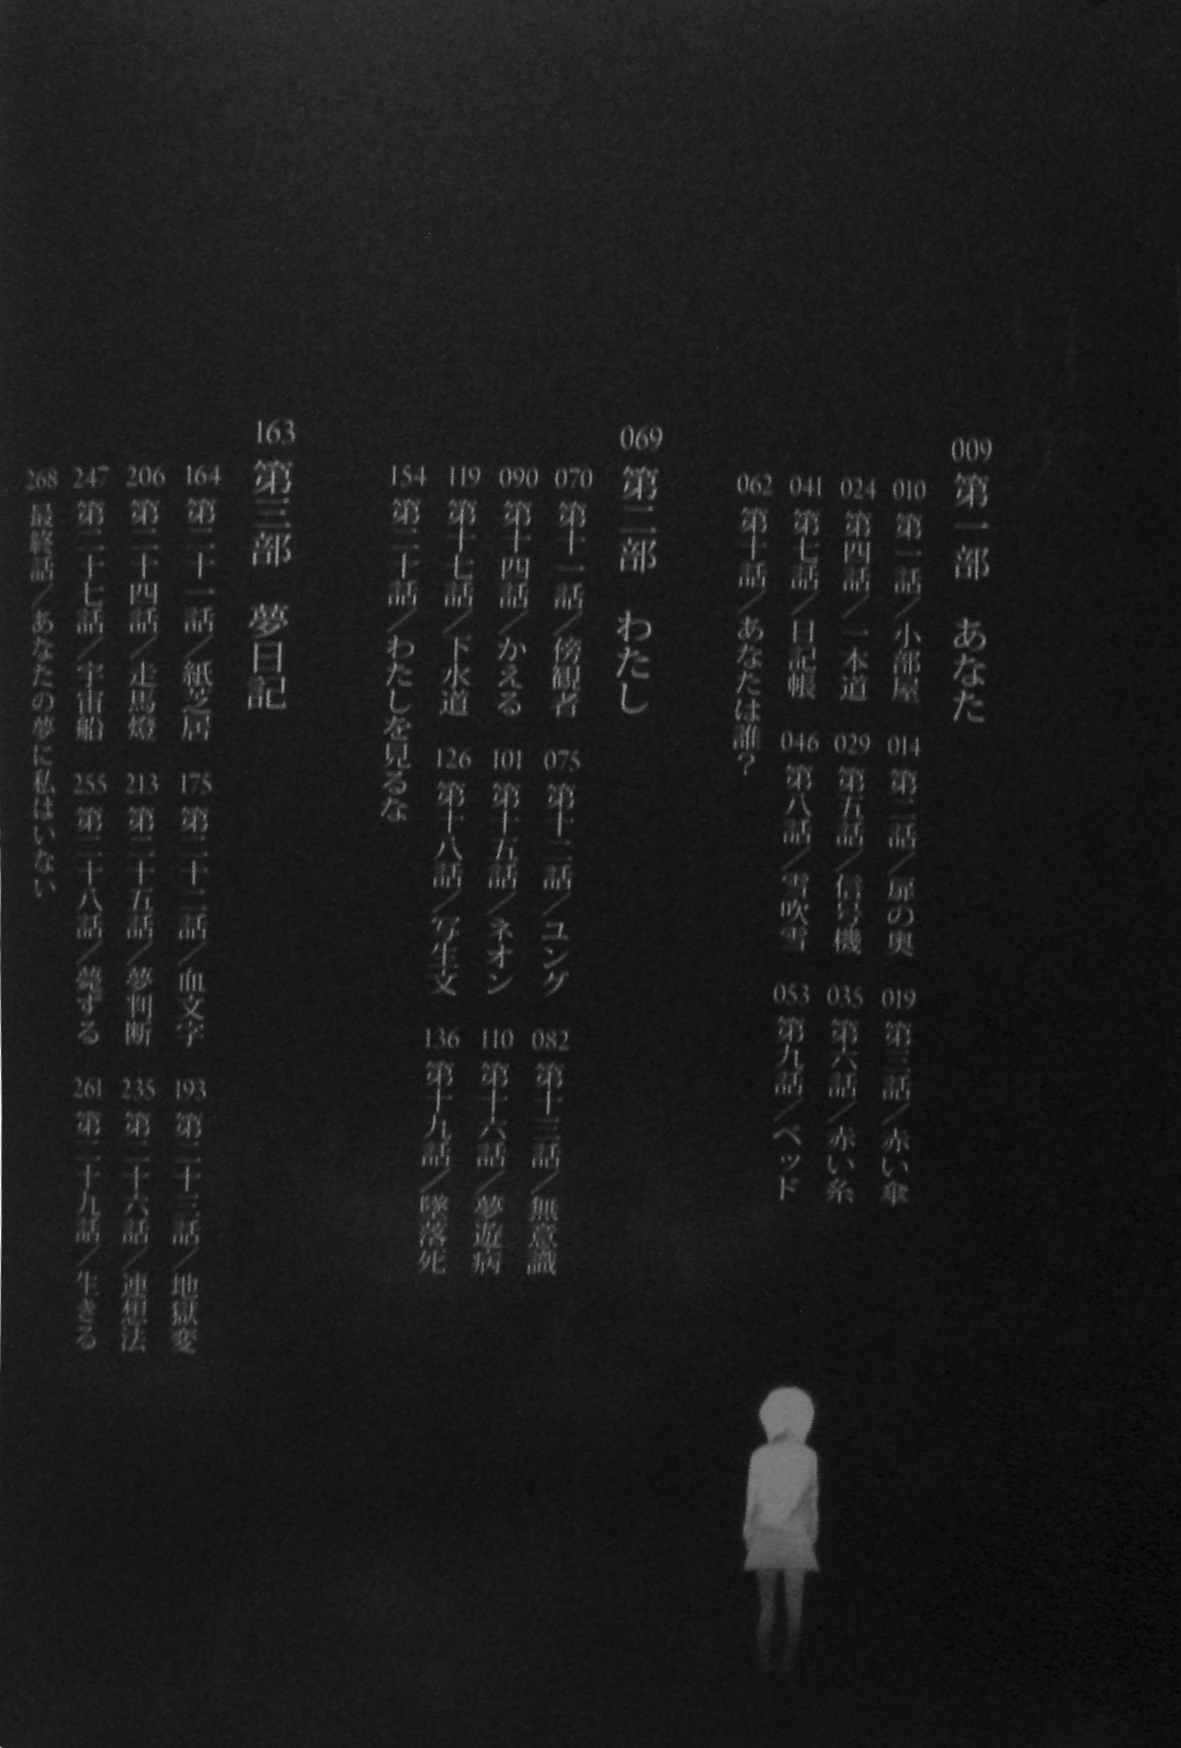 009 第一部 あなた
010 第一話／小部屋 014 第二話／扉の奥 019 第三話／赤い傘
024 第四話／一本道 029 第五話／信号機 035 第六話／赤い糸
041 第七話／日記帳 046 第八話／雪吹雪 053 第九話／ベッド
062 第十話／あなたは誰？
069 第二部 わたし
070 第十一話／傍観者 075 第十二話／ユング 082 第十三話／無意識
090 第十四話／かえる 101 第十五話／ネオン 110 第十六話／夢遊病
119 第十七話／下水道 126 第十八話／写生文 136 第十九話／墜落死
154 第二十話／わたしを見るな
163 第三部 夢日記
164 第二十一話／紙芝居 175 第二十二話／血文字 193 第二十三話／地獄変
206 第二十四話／走馬燈 213 第二十五話／夢判断 235 第二十六話／連想法
247 第二十七話／宇宙船 255 第二十八話／薨ずる 261 第二十九話／生きる
268 最終話／あなたの夢に私はいない